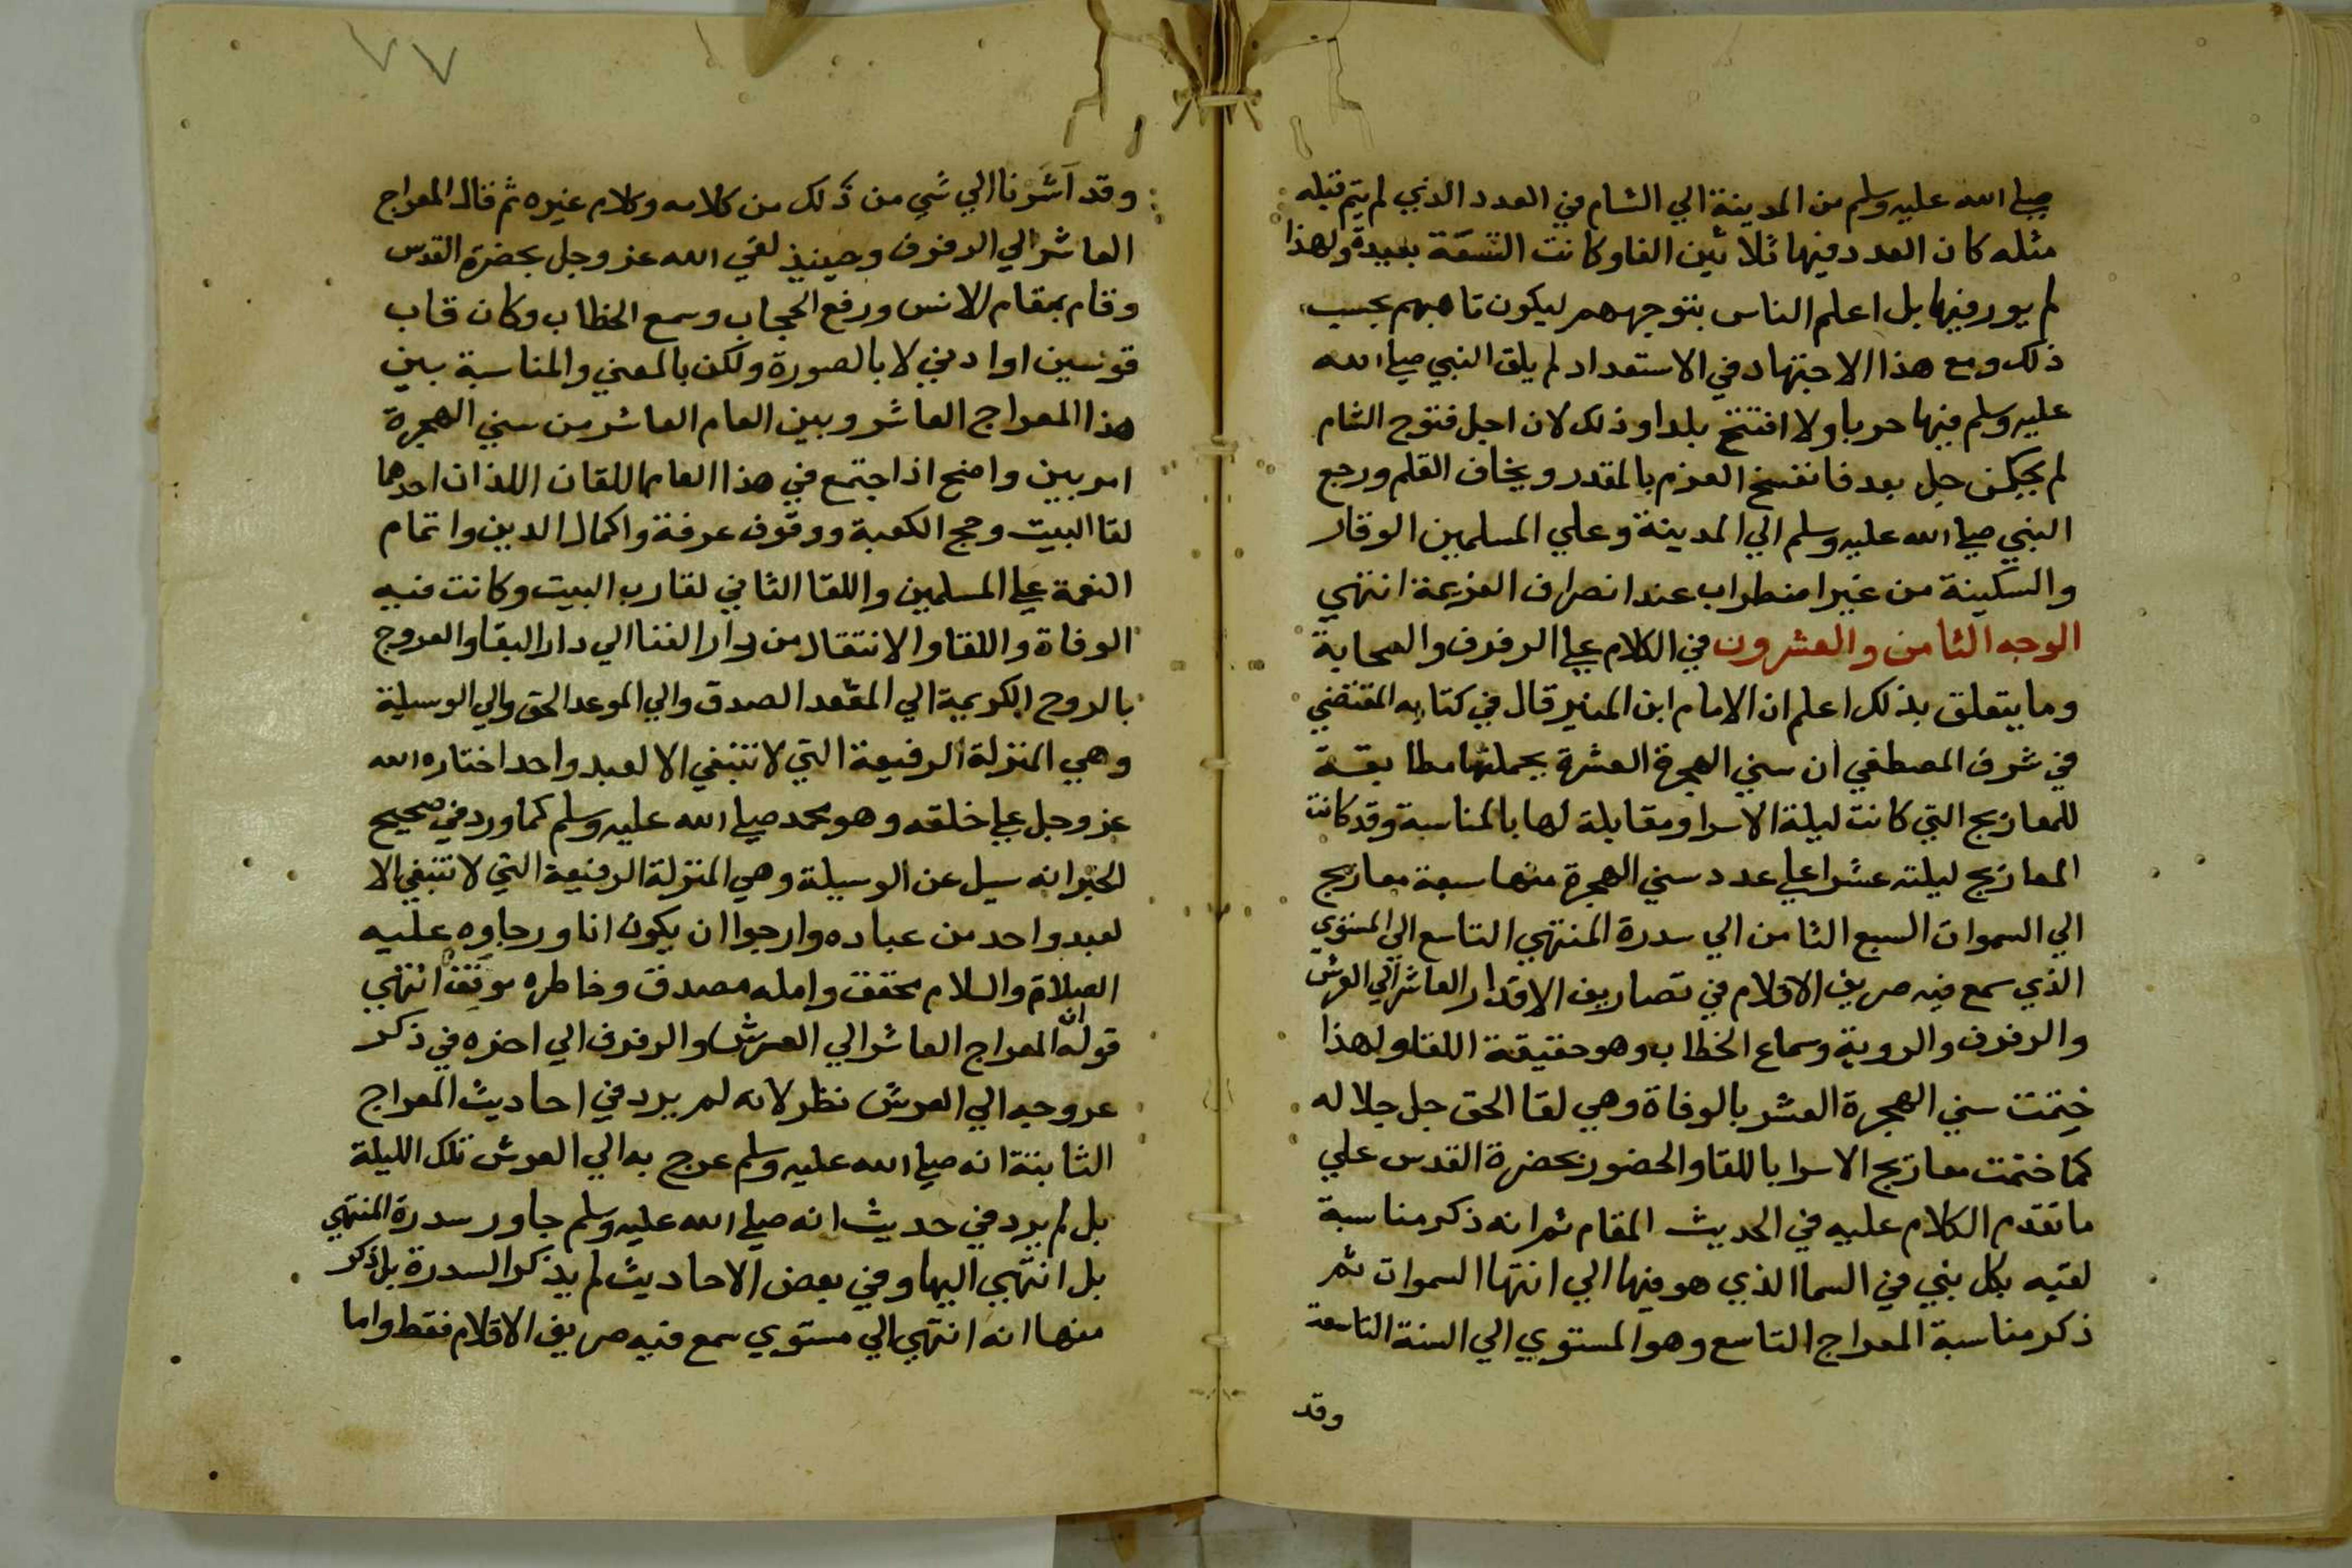 صلي الله عليه وسلم من المدينة الي الشام في العدد الذي لم يتم قبله
مثله كان العدد فيها ثلاثين الفا وكانت الشقة بعيدة ولهذا
لم يور فيها بل اعلم الناس بتوجههم ليكون تاهبهم بحسب
ذلك ومع هذا الاجتهاد في الاستعداد لم يلق النبي صلي الله
عليه وسلم فيها حربا ولا افتتح بلدا وذلك لان اجل فتوح الشام
لم يكن حل بعد فانفسخ العزم بالمقدر وبخاف القلم ورجع
النبي صلي الله عليه وسلم الي المدينة وعلي المسلمين الوقار
والسكينة من غير اضطراب عند انصراف العزيمة انتهي
الوجه الثامن والعشرون في الكلام علي الرفرف والسحابة
وما يتعلق بذلك اعلم ان الامام ابن المنير قال في كتابه المقتفي
في شرف المصطفي ان سني الهجرة العشرة بجملتها مطابقة
للمعاريج التي كانت ليلة الاسرا ومقابلة لها بالمناسبة وقد كانت
المعاريج ليلته عشرا علي عدد سني الهجرة منها سبعة معاريج
الي السموات السبع الثامن الي سدرة المنتهي التاسع الي المستوي
الذي سمع فيه صريف الاقلام في تصاريف الاقدار العاشر الي العرش
والرفرف والروية وسماع الخطاب وهو حقيقة اللقا ولهذا
ختمت سني الهجرة العشر بالوفاة وهي لقا الحق جل جلاله
كما ختمت معاريج الاسرا باللقا والحضور بحضرة القدس علي
ما تقدم الكلام عليه في الحديث المقام ثم انه ذكر مناسبة
لقيه بكل نبي في السما الذي هو فيها الي انتها السموات ثم
ذكر مناسبة المعراج التاسع وهو المستوي الي السنة التاسعة
وقد
٧٧
وقد اشرنا الي شي من ذلك من كلامه وكلام غيره ثم قال المعراج
العاشر الي الرفرف وحينيذ لقي الله عز وجل بحضرة القدس
وقام بمقام الانس ورفع الحجاب وسمع الخطاب وكان قاب
قوسين او ادني لا بالصورة ولكن بالمعني والمناسبة بين
هذا المعراج العاشر وبين العام العاشر من سني الهجرة
امر بين واضح اذ اجتمع في هذا العام اللقان اللذان احدهما
لقا البيت وحج الكعبة ووقوف عرفة واكمال الدين واتمام
النعمة علي المسلمين واللقا الثاني لقا رب البيت وكانت فيه
الوفاة واللقا والانتقال من دار الفنا الي دار البقا والعروج
بالروح الكريمة الي المقعد الصدق والي الموعد الحق والي الوسيلة
وهي المنزلة الرفيعة التي لا تنبغي الا لعبد واحد اختاره الله
عز وجل علي خلقه وهو محمد صلي الله عليه وسلم كما ورد في صحيح
الخبر انه سيل عن الوسيلة وهي المنزلة الرفيعة التي لا تنبغي الا
لعبد واحد من عباده وارجوا ان يكون انا ورجاوه عليه
الصلاة والسلام محقق وامله مصدق وخاطره موفق انتهي
قوله ان المعراج العاشر الي العرش والرفرف الي اخره في ذكر
عروجه الي العرش نظر لانه لم يرد في احاديث المعراج
الثابتة انه صلي الله عليه وسلم عرج به الي العرش تلك الليلة
بل لم يرد في حديث انه صلي الله عليه وسلم جاوز سدرة المنتهي
بل انتهي اليها وفي بعض الاحاديث لم يذكر السدرة بل ذكر
منها انه انتهي الي مستوي سمع فيه صريف الاقلام فقط واما